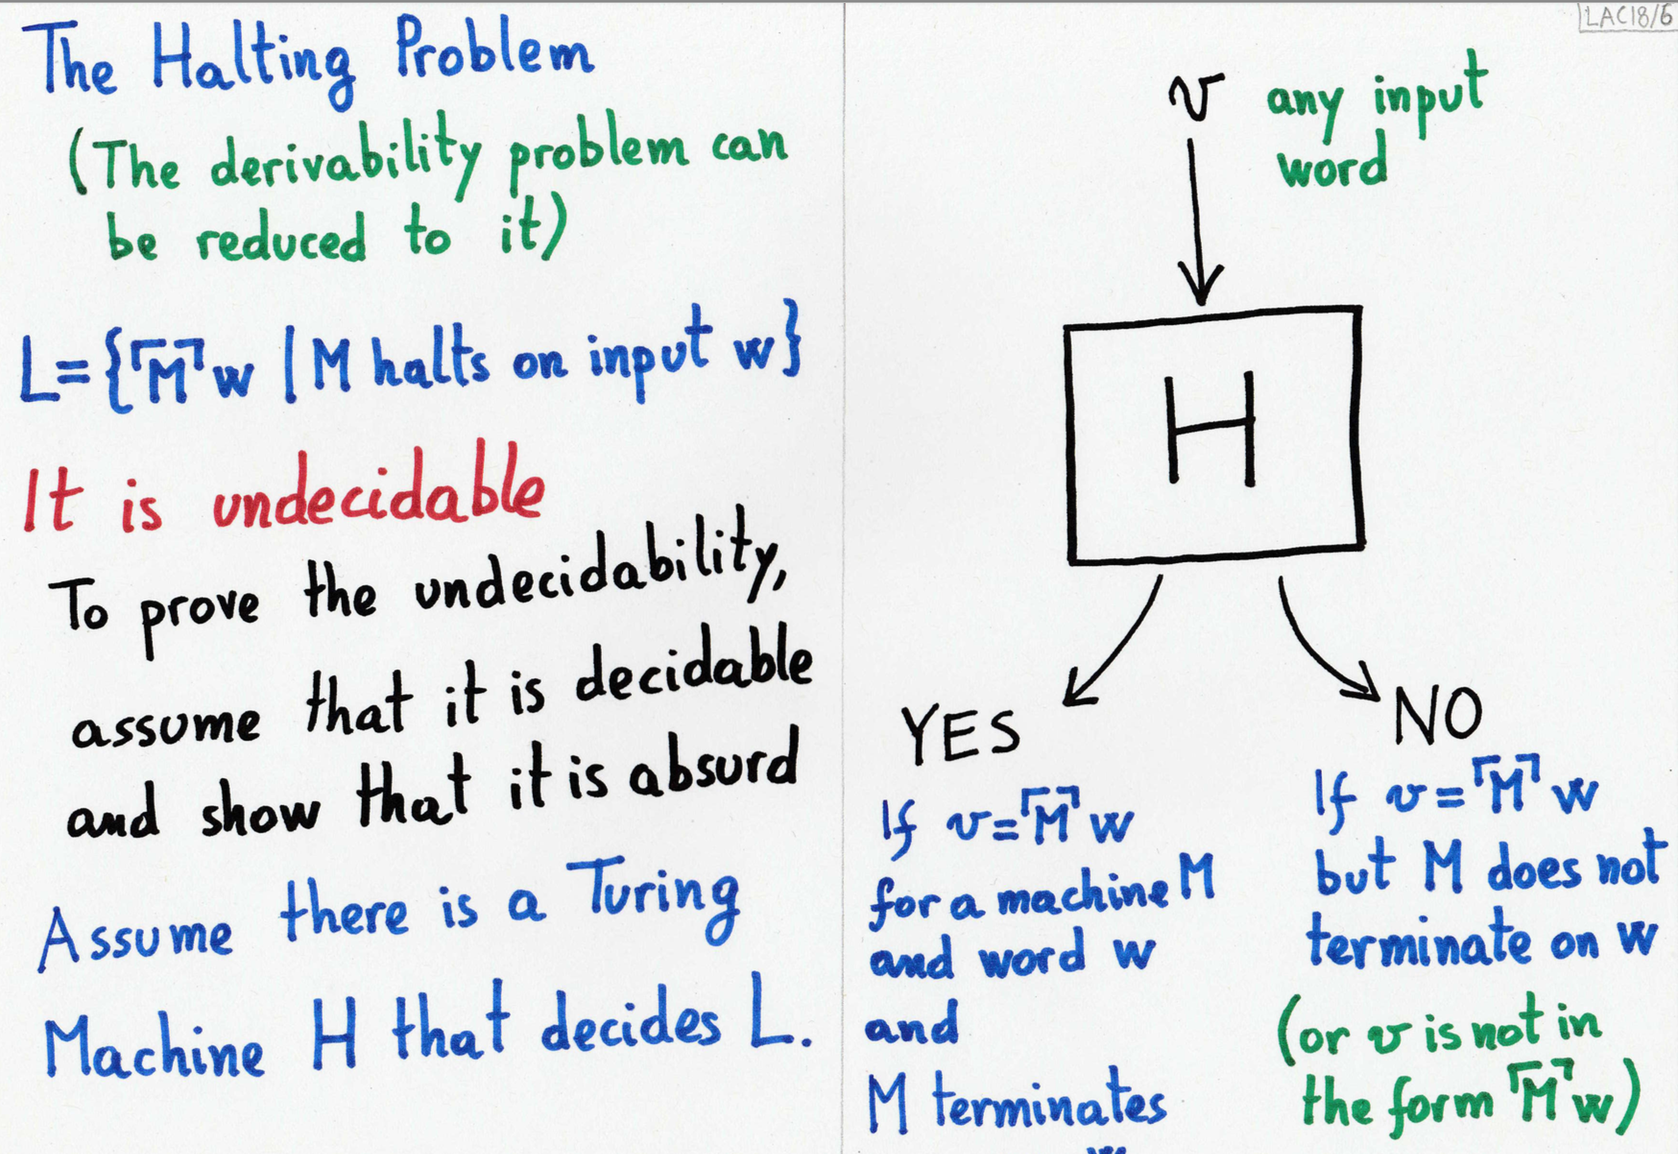 The Halting Problem
(The derivability problem can
be reduced to it)
L={⌜M⌝w | M halts on input w}
It is undecidable
To prove the undecidability,
assume that it is decidable
and show that it is absurd
Assume there is a Turing
Machine H that decides L.
LAC18/6
v any input
word
H
YES
If v=⌜M⌝w
for a machine M
and word w
and
M terminates
NO
If v=⌜M⌝w
but M does not
terminate on w
(or v is not in
the form ⌜M⌝w)